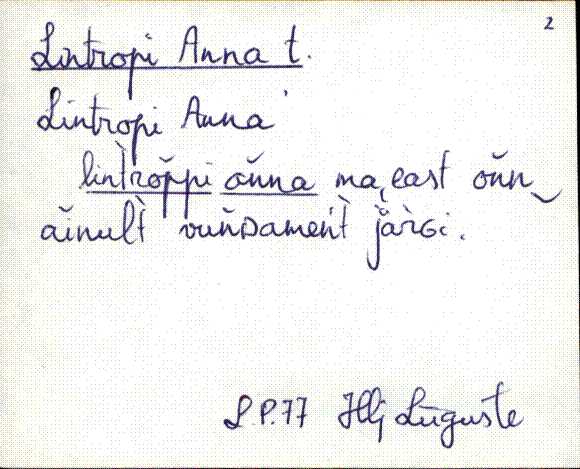 2
Lintropi Anna t.
Lintropi Anna
lintroppi onna ma, east oŭn
ăinult vuńDament järGi.
L.P.77 Illi Lūguste